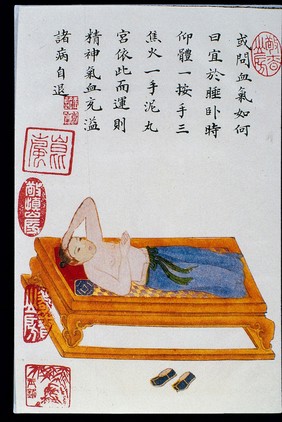 或問血氣如何
曰宜於睡卧時
仰體一按手三
焦火一手泥丸
宫依此而運則
精神氣血充溢
諸病自退